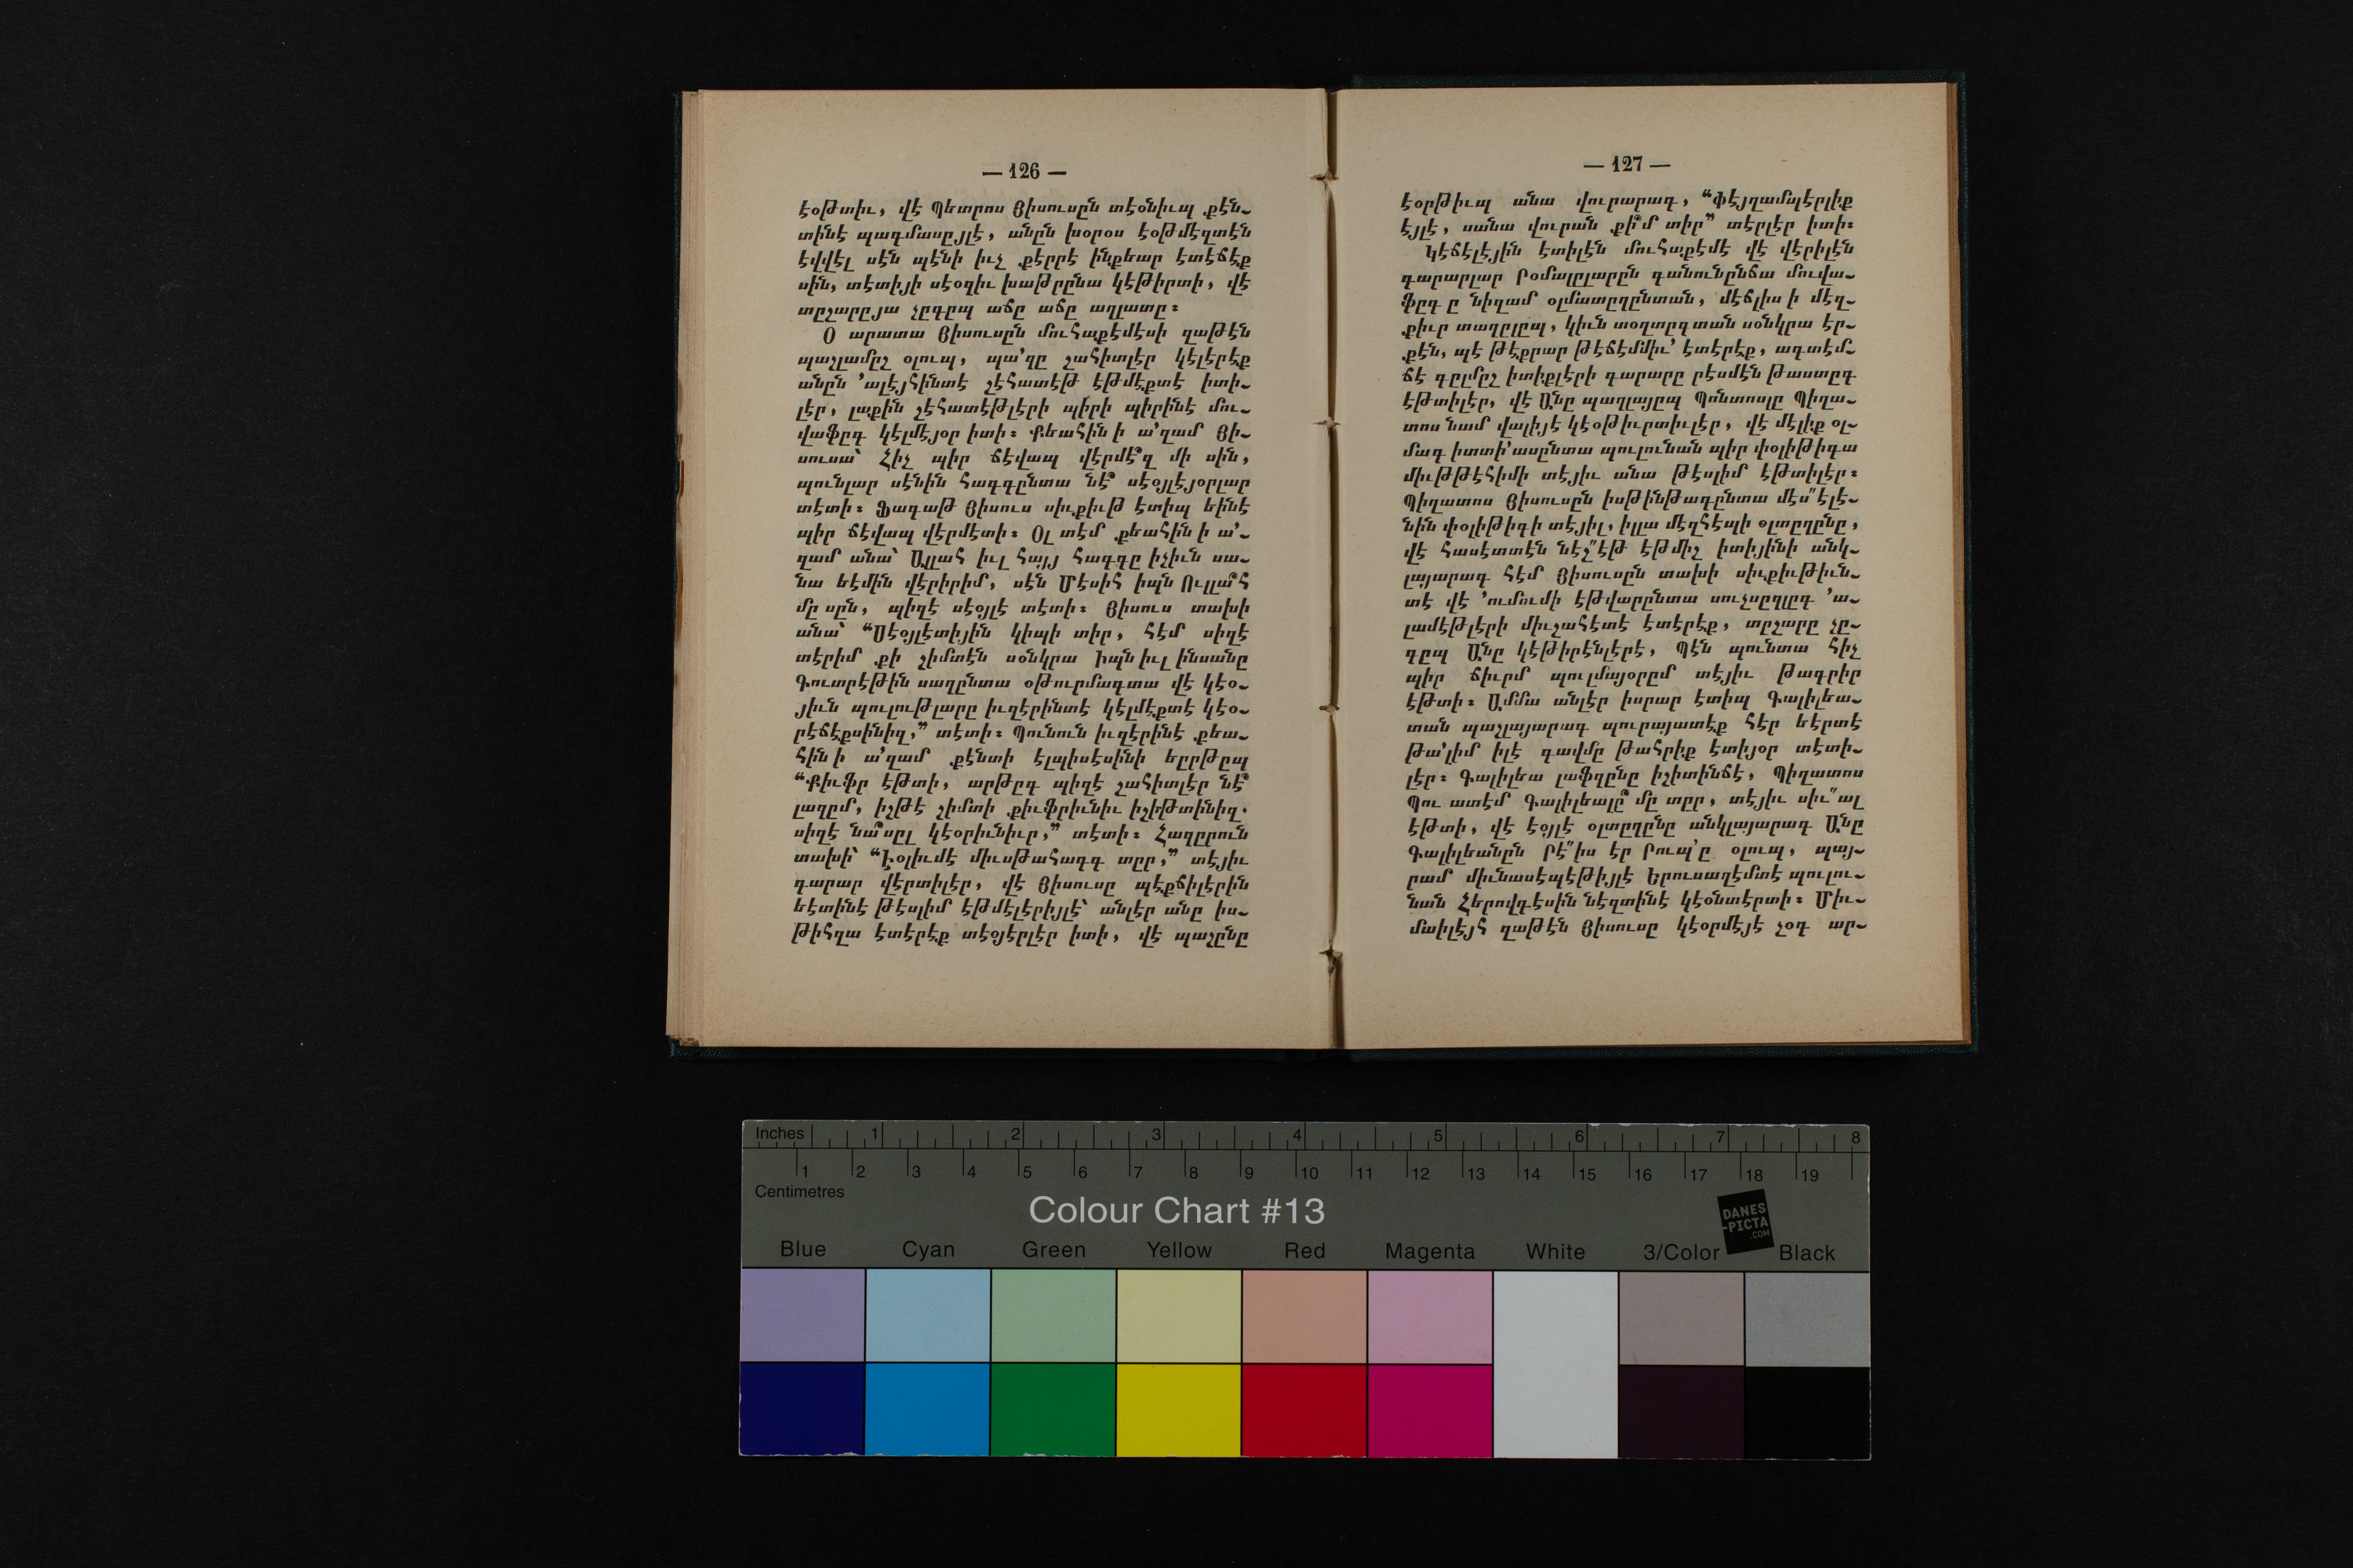 — 126 —
էօթտիւ, վէ Պետրոս Յիսուսըն տէօնիւպ քէն֊
տինէ պագմասըյլէ, անըն խօրօս էօթմէզտէն
էվվէլ սէն պէնի իւչ քէրրէ ինքեար էտէճէք
սին, տէտիյի սէօզիւ խաթըրընա կէթիրտի, վէ
տըշարըյա չըգըպ աճը աճը աղլատը։
Օ արատա Յիսուսըն մուհաքէմէսի զաթէն
պաշլամըշ օլուպ, պա՚զը շահիտլէր կէլէրէք
անըն ՚ալէյհինտէ շէհատէթ էթմէքտէ իտի֊
լէր, լաքին շէհատէթլէրի պիրի պիրինէ մու֊
վաֆըգ կէլմէյօր իտի։ Քեահին ի ա՚զամ Յի֊
սուսա՝ Հիչ պիր ճէվապ վէրմէ՞զ մի սին,
պունլար սէնին հագգընտա նէ՞ սէօյլէյօրլար
տէտի։ Ֆագաթ Յիսուս սիւքիւթ էտիպ եինէ
պիր ճէվապ վէրմէտի։ Օլ տէմ քեահին ի ա՚֊
զամ անա՝ Ալլահ իւլ հայյ հագգը իչիւն սա֊
նա եէմին վէրիրիմ, սէն Մէսիհ իպն Ուլլա՞հ
մը սըն, պիզէ սէօյլէ տէտի։ Յիսուս տախի
անա՝ “Սէօյլէտիյին կիպի տիր, հէմ սիզէ
տէրիմ քի շիմտէն սօնկրա Իպն իւլ ինսանը
Գուտրէթին սաղընտա օթուրմագտա վէ կէօ֊
յիւն պուլութլարը իւզէրինտէ կէլմէքտէ կէօ֊
րէճէքսինիզ,” տէտի։ Պունուն իւզէրինէ քեա֊
հին ի ա՚զամ քէնտի էլպիսէսինի եըրթըպ
“Քիւֆր էթտի, արթըգ պիզէ շահիտլէր նէ՞
լազըմ, իշթէ շիմտի քիւֆրիւնիւ իշիթտինիզ.
սիզէ նա՞սըլ կէօրիւնիւր,” տէտի։ Հազըրուն
տախի՝ “Էօլիւմէ միւսթահագգ տըր,” տէյիւ
գարար վէրտիլէր, վէ Յիսուսը պէքճիլէրին
եէտինէ թէսլիմ էթմէլէրիյլէ՝ անլէր անը իս֊
թիհզա էտէրէք տէօյէրլէր իտի, վէ պաշընը
— 127 —
էօրթիւպ անա վուրարագ, “Փէյղամպէրլիք
էյլէ, սանա վուրան քի՞մ տիր” տէրլէր իտի։
Կէճէլէյին էտիլէն մուհաքէմէ վէ վէրիլէն
գարարլար Րօմալըլարըն գանունընճա մուվա֊
ֆըգ ը նիզամ օլմատըղընտան, մէճլիս ի մէզ֊
քիւր տաղըլըպ, կիւն տօղտըգտան սօնկրա էր֊
քէն, պէ թէքրար թէճէմմիւ՚ էտէրէք, ագտէմ֊
ճէ գըլմըշ իտիքլէրի գարարը րէսմէն թաստըգ
էթտիլէր, վէ Անը պաղլայըպ Պոնտոսլը Պիղա֊
տոս նամ վալիյէ կէօթիւրտիւլէր, վէ մէլիք օլ֊
մագ իտտի՚ասընտա պուլունան պիր փօլիթիգա
միւթթէհիմի տէյիւ անա թէսլիմ էթտիլէր։
Պիղատոս Յիսուսըն իսթինթագընտա մէս՚՚էլէ֊
նին փօլիթիգի տէյիլ, իլլա մէզհէպի օլտըղընը,
վէ հասէտտէն նէշ՚՚էթ էթմիշ իտիյինի անկ֊
լայարագ հէմ Յիսուսըն տախի սիւքիւթիւն֊
տէ վէ ՚ումումի էթվարընտա սուչսըզլըգ ՚ա֊
լամէթլէրի միւշահէտէ էտէրէք, տըշարը չը֊
գըպ Անը կէթիրէնլէրէ, Պէն պունտա հիչ
պիր ճիւրմ պուլմայօրըմ տէյիւ թագրիր
էթտի։ Ամմա անլէր իսրար էտիպ Գալիլեա֊
տան պաշլայարագ պուրայատէք հէր եէրտէ
թա՚լիմ իլէ գավմը թահրիք էտիյօր տէտի֊
լէր։ Գալիլեա լաֆզընը իշիտինճէ, Պիղատոս
Պու ատէմ Գալիլեալը՞ մը տըր, տէյիւ սիւ՚՚ալ
էթտի, վէ էօյլէ օլտըղընը անկլայարագ Անը
Գալիլեանըն Րէ՚՚իս էր Րուպ՚ը օլուպ, պայ֊
րամ միւնասէպէթիյլէ Երուսաղէմտէ պուլու֊
նան Հերովդէսին նէզտինէ կէօնտէրտի։ Միւ֊
մաիլէյհ զաթէն Յիսուսը կէօրմէյէ չօգ ար֊
Inches 1 2 3 4 5 6 7 8
1 2 3 4 5 6 7 8 9 10 11 12 13 14 15 16 17 18 19
Centimetres
Colour Chart #13
DANES
-PICTA
.COM
Blue Cyan Green Yellow Red Magenta White 3/Color Black